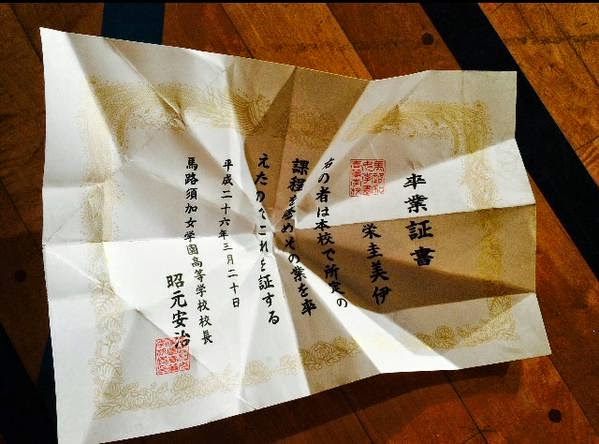 卒業証書
栄圭美伊
右の者は本校で所定の
課程を修めその業を卒
えたのでこれを証する
平成二十六年三月二十日
馬路須加女学園高等学校校長
昭元安治